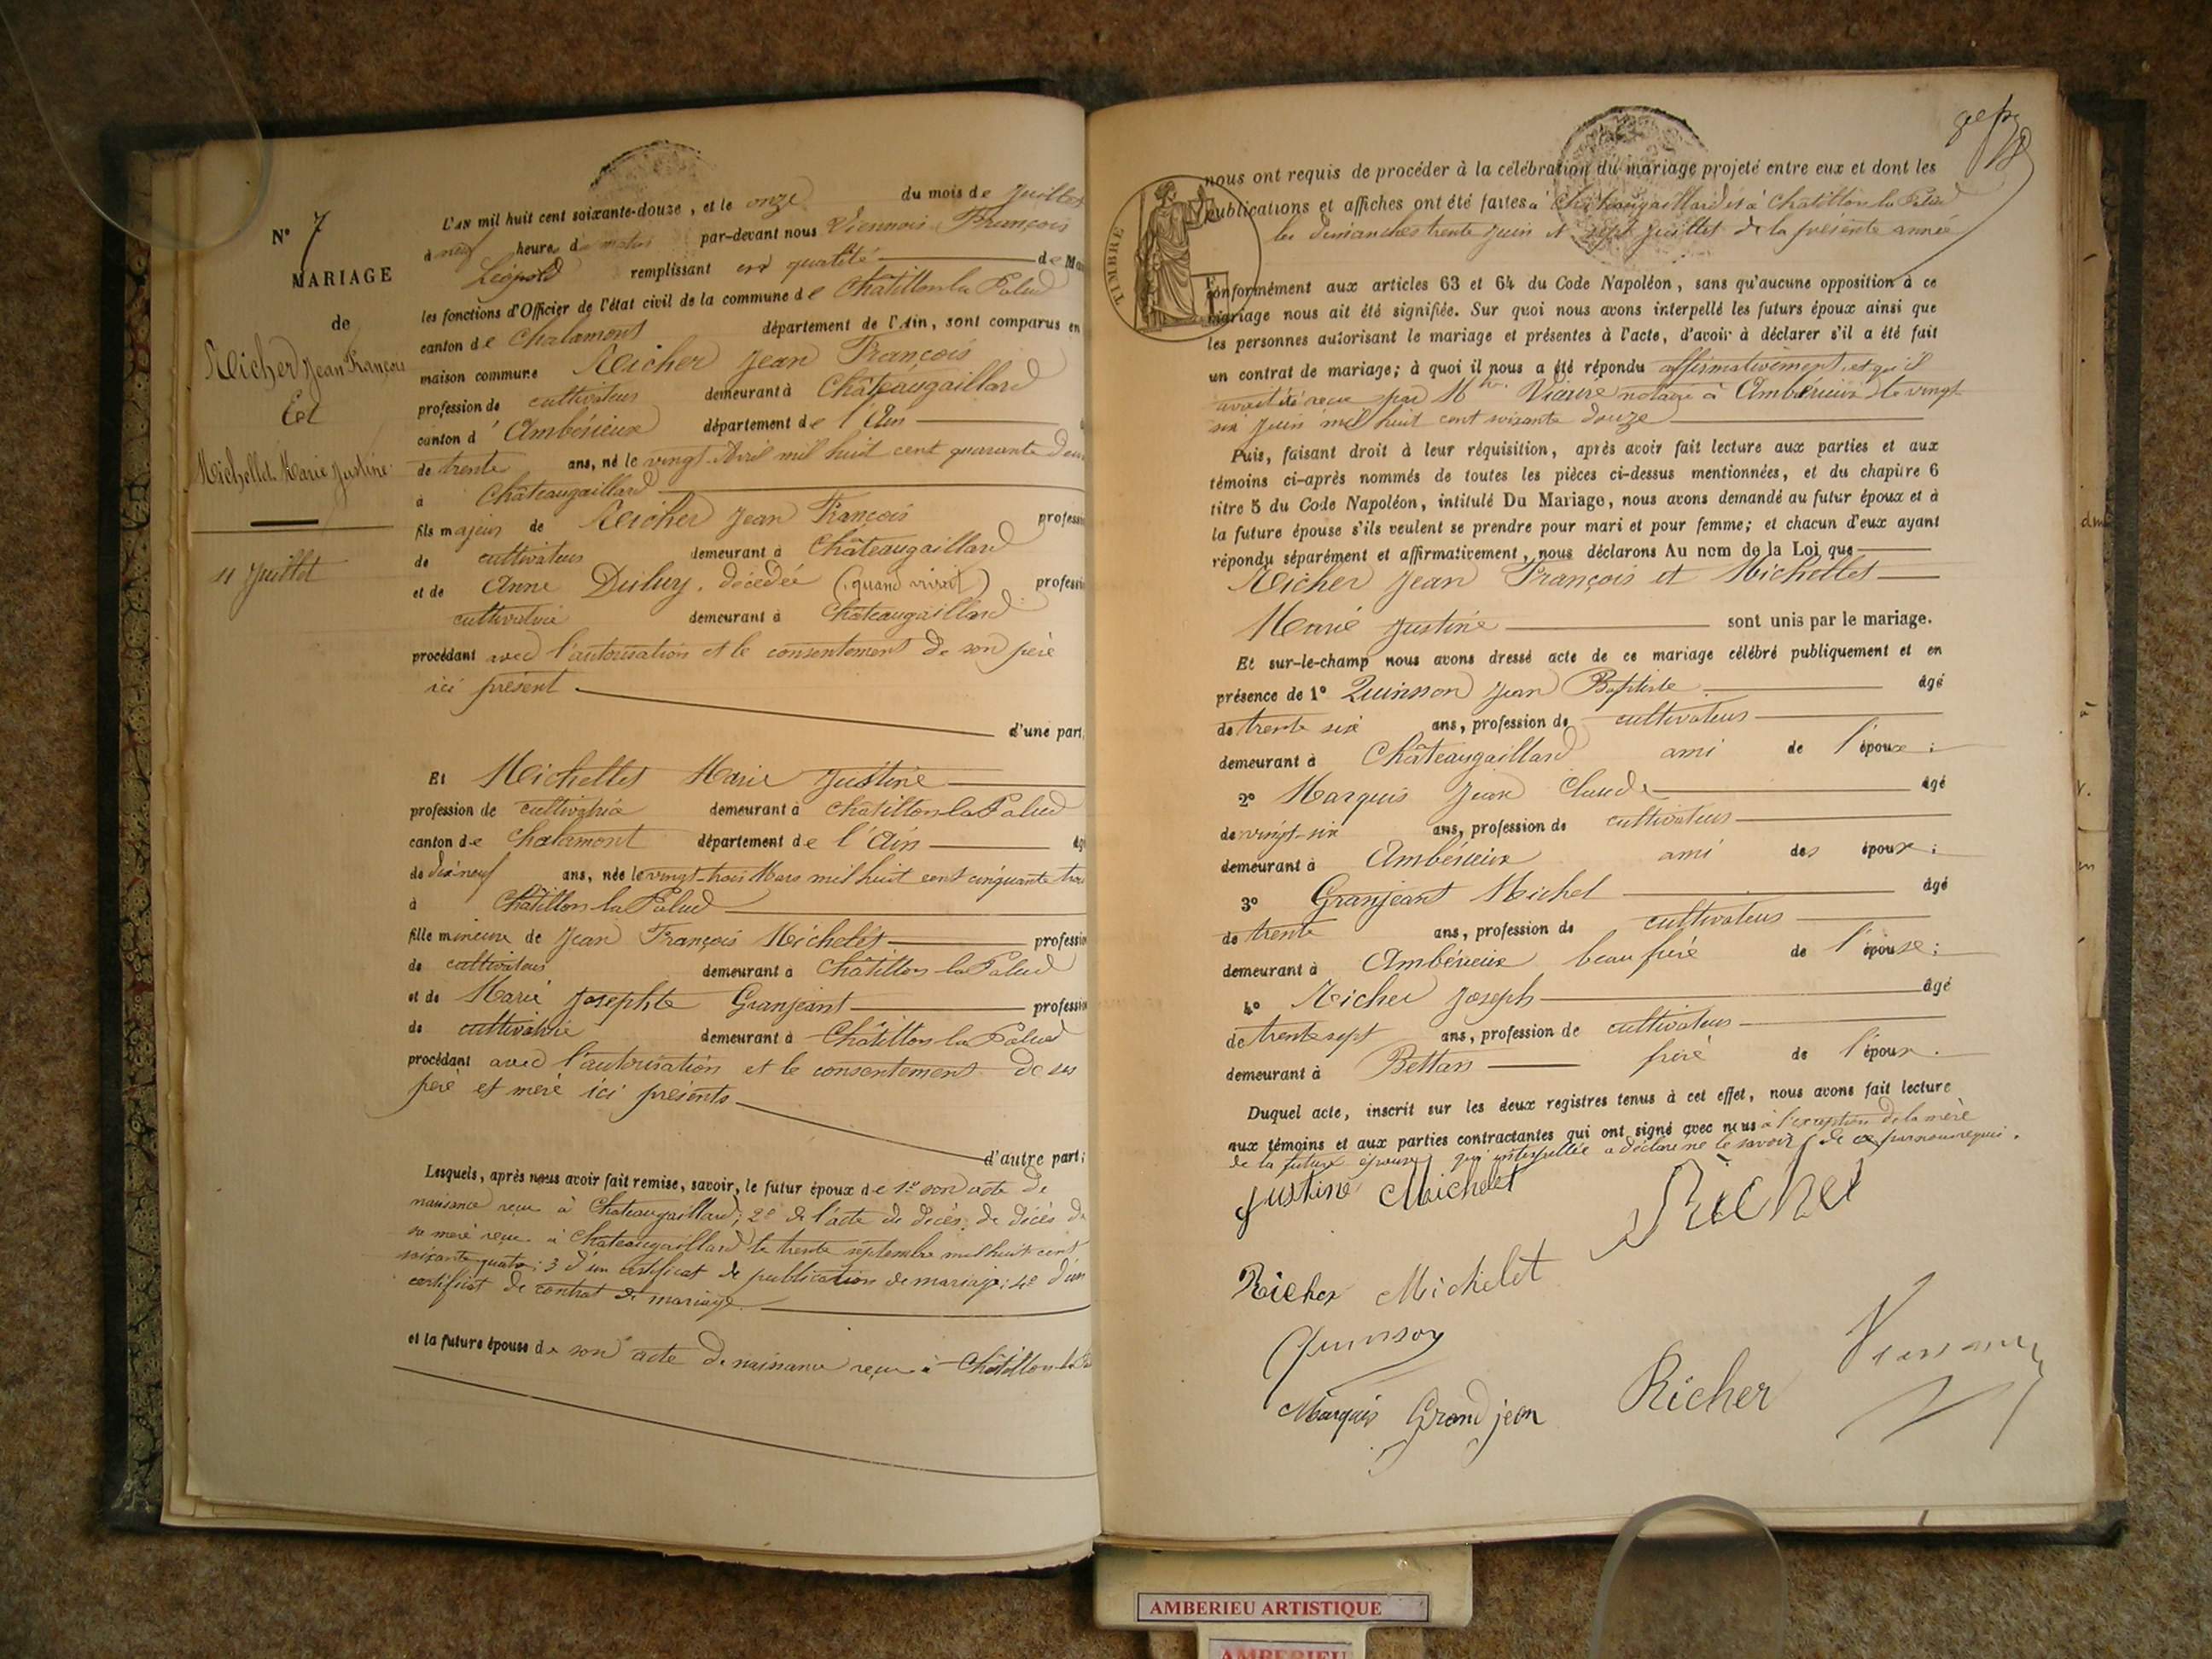 N° 7
MARIAGE
de
Richer Jean François
Et
Michellet Marie Justine
11 Juillet
L'AN mil huit cent soixante-douze, et le onze du mois de Juillet
à neuf heures d matin par-devant nous Viennois François
Léopold remplissant en qualité de Ma
les fonctions d'Officier de l'état civil de la commune de Châtillon la Palud
canton de Chalamont département de l'Ain, sont comparus en
maison commune Richer Jean François
profession de cultivateur demeurant à Châteaugaillard
canton d'Ambérieux département de l'Ain
de trente ans, né le vingt Avril mil huit cent quarante deux
à Châteaugaillard
fils majeur de Richer Jean François profession
de cultivateur demeurant à Châteaugaillard
et de Anne décédée (quand vivait) profession
cultivatrice demeurant à Châteaugaillard
procédant avec l'autorisation et le consentement de son père
ici présent
d'une part,
Et Michellet Marie Justine
profession de cultivatrice demeurant à Châtillon la Palud
canton de Chalamont département de l'Ain âgé
de dix neuf ans, née le vingt-trois Mars mil huit cent cinquante trois
à Châtillon la Palud
fille mineure de Jean François Michelet profession
de cultivateur demeurant à Châtillon la Palud
et de Marie Josephte Granjeant profession
de cultivatrice demeurant à Châtillon la Palud
procédant avec l'autorisation et le consentement de ses
père et mère ici présents
d'autre part;
Lesquels, après nous avoir fait remise, savoir, le futur époux de 1° son acte de
naissance reçu à Chateaugaillard; 2° de l'acte de décès de décès de
sa mère reçu à Chateaugaillard le trente septembre mil huit cent
soixante quatre; 3 d'un certificat de publication de mariage; 4° d'un
certificat de contrat de mariage.
et la future épouse de son acte de naissance reçu à Châtillon la Pa
TIMBRE
nous ont requis de procéder à la célébration du mariage projeté entre eux et dont les
publications et affiches ont été faites à Châteaugaillard et à Châtillon la Palud
les dimanches trente Juin et sept Juillet de la présente année
conformément aux articles 63 et 64 du Code Napoléon, sans qu'aucune opposition à ce
mariage nous ait été signifiée. Sur quoi nous avons interpellé les futurs époux ainsi que
les personnes autorisant le mariage et présentes à l'acte, d'avoir à déclarer s'il a été fait
un contrat de mariage; à quoi il nous a été répondu affirmativement et qu'il
avait été reçu par Mtre notaire à Ambérieux le vingt
six Juin mil huit cent soixante douze
Puis, faisant droit à leur réquisition, après avoir fait lecture aux parties et aux
témoins ci-après nommés de toutes les pièces ci-dessus mentionnées, et du chapitre 6
titre 5 du Code Napoléon, intitulé Du Mariage, nous avons demandé au futur époux et à
la future épouse s'ils veulent se prendre pour mari et pour femme; et chacun d'eux ayant
répondu séparément et affirmativement, nous déclarons Au nom de la Loi que
Richer Jean François et Michellet
Marie Justine sont unis par le mariage.
Et sur-le-champ nous avons dressé acte de ce mariage célébré publiquement et en
présence de 1° Quinson Jean Baptiste âgé
de trente six ans, profession de cultivateur
demeurant à Châteaugaillard ami de l'époux;
2° Marquis Jean Claude âgé
de vingt-six ans, profession de cultivateur
demeurant à Ambérieux ami des époux;
3° Granjeant Michel âgé
de trente ans, profession de cultivateur
demeurant à Ambérieux beau frère de l'épouse;
4° Richer Joseph âgé
de trente sept ans, profession de cultivateur
demeurant à Bettan frère de l'époux.
Duquel acte, inscrit sur les deux registres tenus à cet effet, nous avons fait lecture
aux témoins et aux parties contractantes qui ont signé avec nous à l'exception de la mère
de la future épouse qui interpellée a déclaré ne le savoir de ce par nous requis.
Justine Michelet
Richer
Richer Michelet
Quinson
Marquis Grandjean Richer
AMBERIEU ARTISTIQUE
AMBERIEU